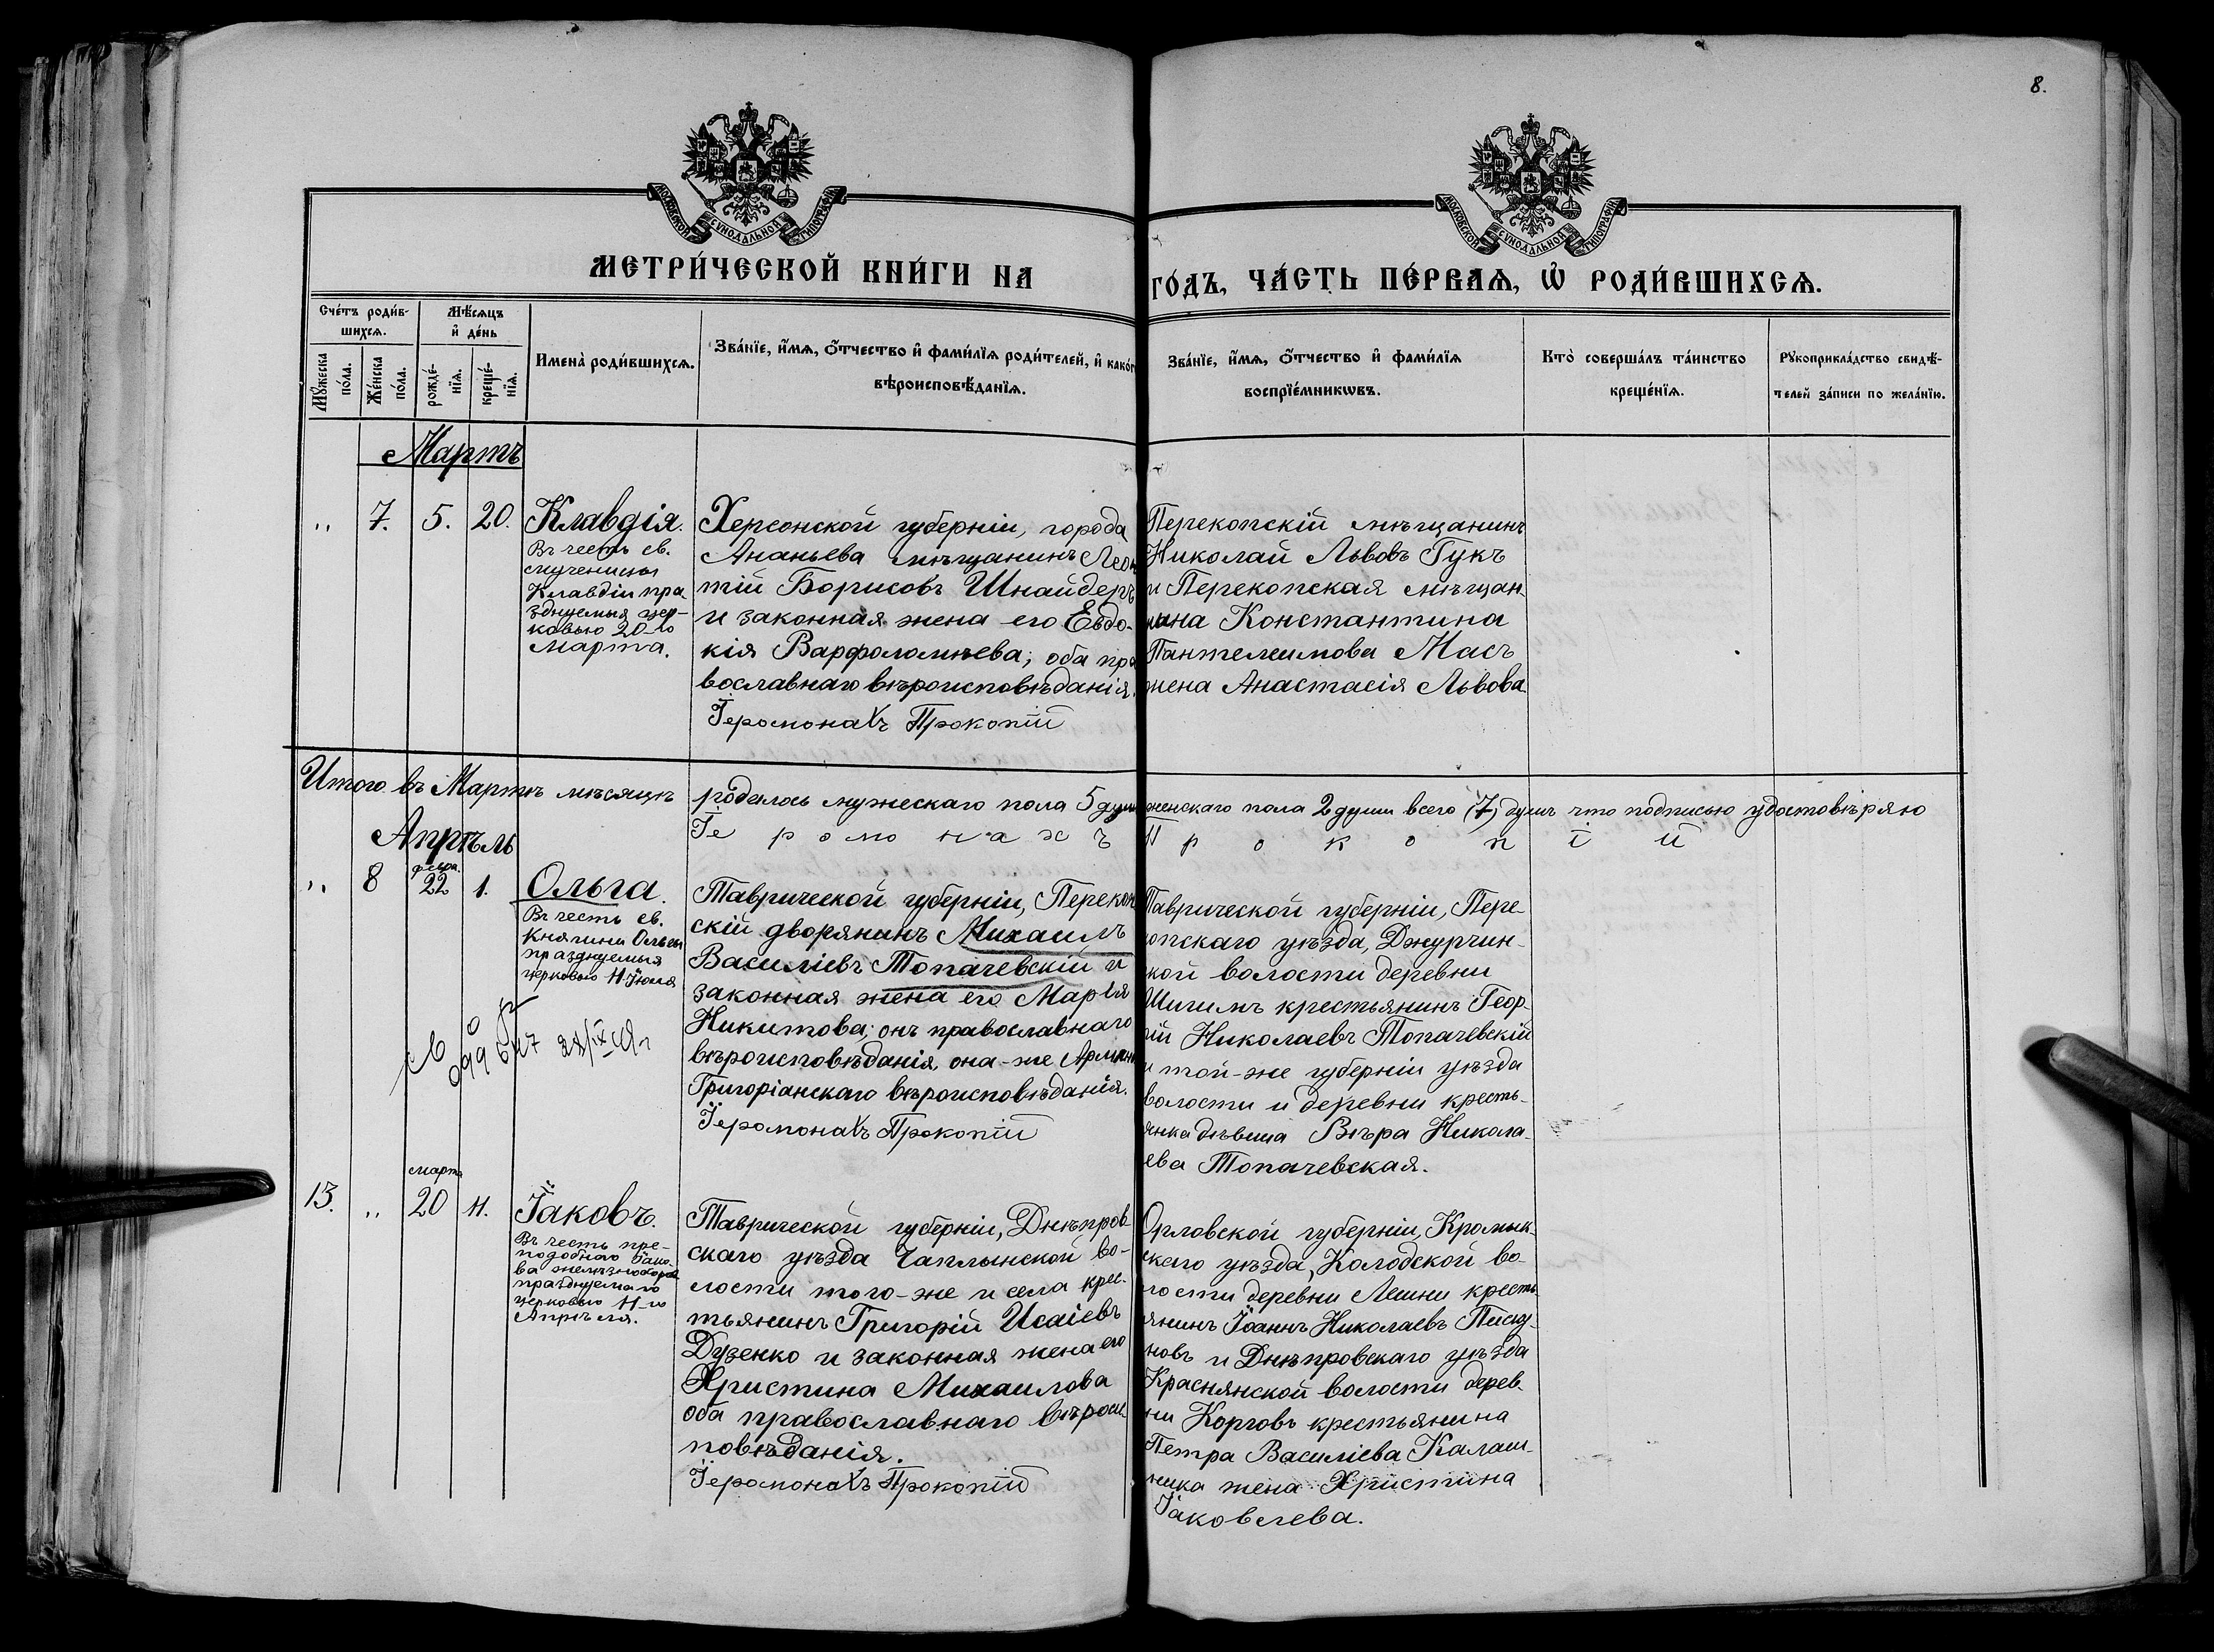 8.
МОСКОВСКОЙ СУНОДАЛЬНОЙ ТИПОГРАФІИ
МОСКОВСКОЙ СУНОДАЛЬНОЙ ТИПОГРАФІИ
МЕТРИ́ЧЕСКОЙ КНИ́ГИ НА
ГО́ДЪ, ЧА́СТЬ ПЕ́РВАѦ, Ѽ РОДИ́ВШИХСѦ.
Сче́тъ роди́в-
шихсѧ.
Мѣ́сѧцъ
и҆ де́нь
Мꙋ́жеска
по́ла.
Же́нска
по́ла.
рожде́-
нїѧ.
креще́-
нїѧ.
Имена̀ роди́вшихсѧ.
Зва́нїе, и҆́мѧ, ѻ҆́тчество и҆ фами́лїѧ роди́телей, и҆ како́г
вѣроисповѣ́данїѧ.
Зва́нїе, и҆́мѧ, ѻ҆́тчество и҆ фами́лїѧ
воспрїе́мникѡвъ.
Кто̀ соверша́лъ та́инство
креще́нїѧ.
Рꙋкоприкла́дство свидѣ́-
телей за́писи по жела́нїю.
Мартъ
" 7. 5. 20.
Клавдія.
Въ честь св.
мученицы
Клавдіи пра
зднуемыя цер-
ковью 20-го
Марта.
Херсонской губерніи, города
Ананьева мѣщанинъ Леон
тій Борисовъ Шнайдеръ
и законная жена его Евдо-
кія Варфоломѣева; оба пра
вославнаго вѣроисповѣданія.
Іеромонахъ Прокопій
Перекопскій мѣщанинъ
Николай Львовъ Гукъ
и Перекопская мѣщан
ина Константина
Пантелеимова Масъ
жена Анастасія Львова.
Итого въ Мартѣ мѣсяцѣ родилось мужескаго пола 5 душ женскаго пола 2 души всего (7) душъ что подписью удостовѣряю
Іеромонахъ Прокопій
Апрѣль
" 8 февра. 22 1.
Ольга.
Въ честь св.
Княгини Ольги
празднуемыя
церковью 11 Іюля
Таврической губерніи, Перекоп
скій дворянинъ Михаилъ
Василіевъ Топачевскій и
законная жена его Марія
Никитова; онъ православнаго
вѣроисповѣданія, она-же Армяно
Григоріанскаго вѣроисповѣданія.
Іеромонахъ Прокопій
Таврической губерніи, Пере-
копскаго уѣзда, Джурчин-
кой волости деревни
Шигимъ крестьянинъ Геор-
гій Николаевъ Топачевскій
и той-же губерніи уѣзда
волости и деревни кресть-
янка дѣвица Вѣра Никола-
ева Топачевская.
13. " марта 20 11.
Іаковъ.
Въ честь пре-
подобнаго Іако-
ва
празднуемаго
церковью 11-го
Апрѣля.
Таврической губерніи, Днѣпров-
скаго уѣзда Чаплынской во-
лости того-же и села крес-
тьянинъ Григорій Исаіевъ
Дузенко и законная жена его
Христина Михаилова
оба православнаго вѣроис-
повѣданія.
Іеромонахъ Прокопій
Орловской губерніи, Кромык-
скаго уѣзда, Колодской во-
лости деревни Лешни кресть-
янинъ Іоаннъ Николаевъ Писку-
новъ и Днѣпровскаго уѣзда
Краснянской волости дерев-
ни Корговъ крестьянина
Петра Василіева Калаш-
ника жена Христина
Іаковлева.